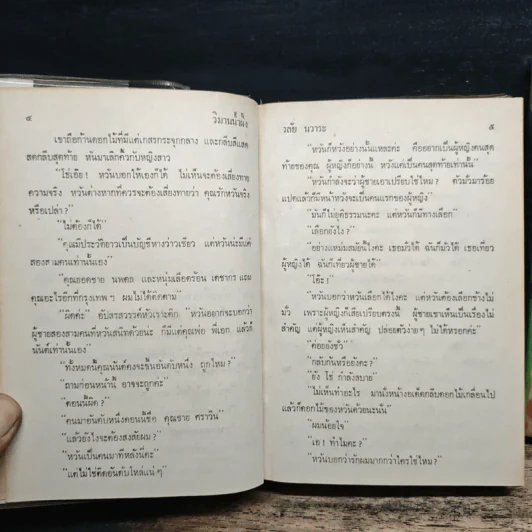 ๔ วิมานน้ำผึ้ง
เขาถือก้านดอกไม้ที่มีแต่เกสรกระจุกกลาง และกลีบสีแสด
สดกลีบสุดท้าย หันมาเลิกคิ้วกับหญิงสาว
"โธ่เอ๊ย! หวันบอกให้เองก็ได้ ไม่เห็นจะต้องเสี่ยงทาย
ความจริง หวันต่างหากที่ควรจะต้องเสี่ยงทายว่า คุณรักหวันจริง
หรือเปล่า?"
"ไม่ต้องก็ได้"
"คุณมีประวัติยาวเป็นบัญชีหางว่าวเชียว แต่หวันน่ะมีแค่
สองสามคนเท่านั้นเอง"
"คุณยอดชาย นพดล และหนุ่มเลือดร้อน เดชากร และ
คุณอะไรอีกที่กรุงเทพ ๆ ผมไม่ได้ติดตาม"
"ผิดค่ะ" อัปสรสวรรค์หัวเราะคิก "หวันอยากจะบอกว่า
ผู้ชายสองสามคนที่หวันสนิทด้วยน่ะ ก็มีแค่คุณพ่อ พี่เอก แล้วก็
นันต์เท่านั้นเอง"
"ทั้งหมดนี้คุณนันต์คงจะเป็นอันดับหนึ่ง ถูกไหม?"
"ถามก่อนหน้านี้ อาจจะถูกค่ะ"
"ตอนนี้ผิด?"
"คนมาอันดับหนึ่งตอนนี้ชื่อ คุณชาย ศราวิน"
"แล้วยังไงจะต้องสงสัยผม?"
"หวันเป็นคนมาทีหลังนี่คะ"
"แต่ไม่ใช่ติดอันดับโหล่แน่ ๆ"
วลัย นวาระ ๕
"หวันก็หวังอย่างนั้นแหละค่ะ คืออยากเป็นผู้หญิงคนสุด
ท้ายของคุณ ผู้หญิงก็อย่างนี้ หวังแค่เป็นคนสุดท้ายเท่านั้น"
"หวันกำลังจะว่าผู้ชายเอาเปรียบใช่ไหม? ตัวมัวมาร้อย
แปดแล้วก็มีหน้าหวังจะเป็นคนแรกของผู้หญิง"
"มันก็ไม่ยุติธรรมนะคะ แต่หวันก็มีทางเลือก"
"เลือกยังไง?"
"อย่างแหม่มสมัยนี้ไงคะ เธอมัวได้ ฉันก็มัวได้ เธอเที่ยว
ผู้หญิงได้ ฉันก็เที่ยวผู้ชายได้"
"โอ๊ะ!"
"หวันบอกว่าหวันเลือกได้ไงคะ แต่หวันต้องเลือกข้างไม่
มัว เพราะผู้หญิงก็เสียเปรียบตรงนี้ ผู้ชายเขาเห็นเป็นเรื่องไม่
สำคัญ แต่ผู้หญิงเห็นสำคัญ ปล่อยตัวง่ายๆ ไม่ได้หรอกค่ะ"
"ค่อยยังชั่ว"
"กลับกันหรือยังคะ?"
"ยัง โธ่ กำลังสบาย"
"ไม่เห็นทำอะไร มานั่งหน้างอเด็ดกลีบดอกไม้เกลื่อนไป
แล้วก็ดอกไม้ของหวันด้วยนะนั่น"
"ผมน้อยใจ"
"เอ! ทำไมคะ?"
"หวันบอกว่ารักผมมากกว่าใครใช่ไหม?"